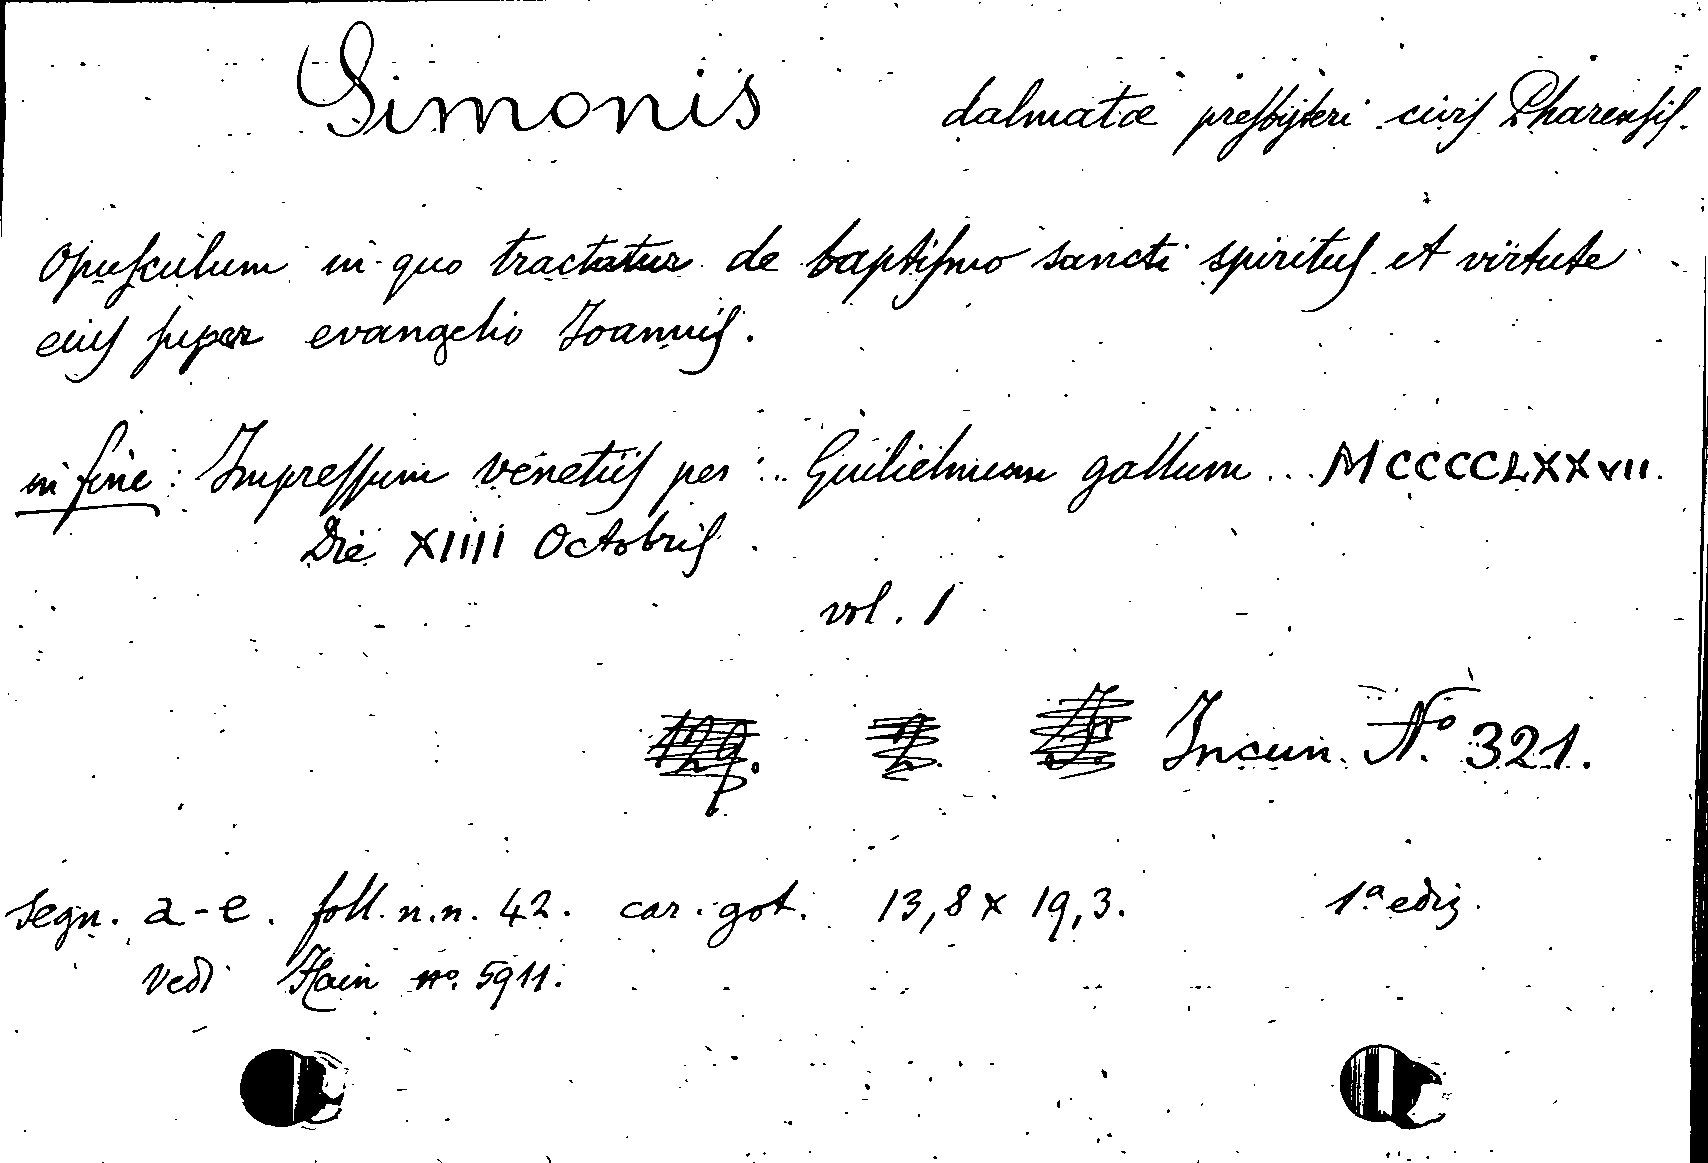 Simonis dalmatæ presbyteri civis Pharensis.
Opusculum in quo tractatur de baptismo sancti spiritus et virtute
eius super evangelio Joannis.
in fine: Impressum venetiis per ... Guilielmum gallum ... MCCCCLXXVII.
Die XIIII Octobris
vol. 1
Incun. No 321.
segn. a-e. foll. n.n. 42. car. got. 13,8 x 19,3. 1a ediz.
Vedi Hain no. 5911.